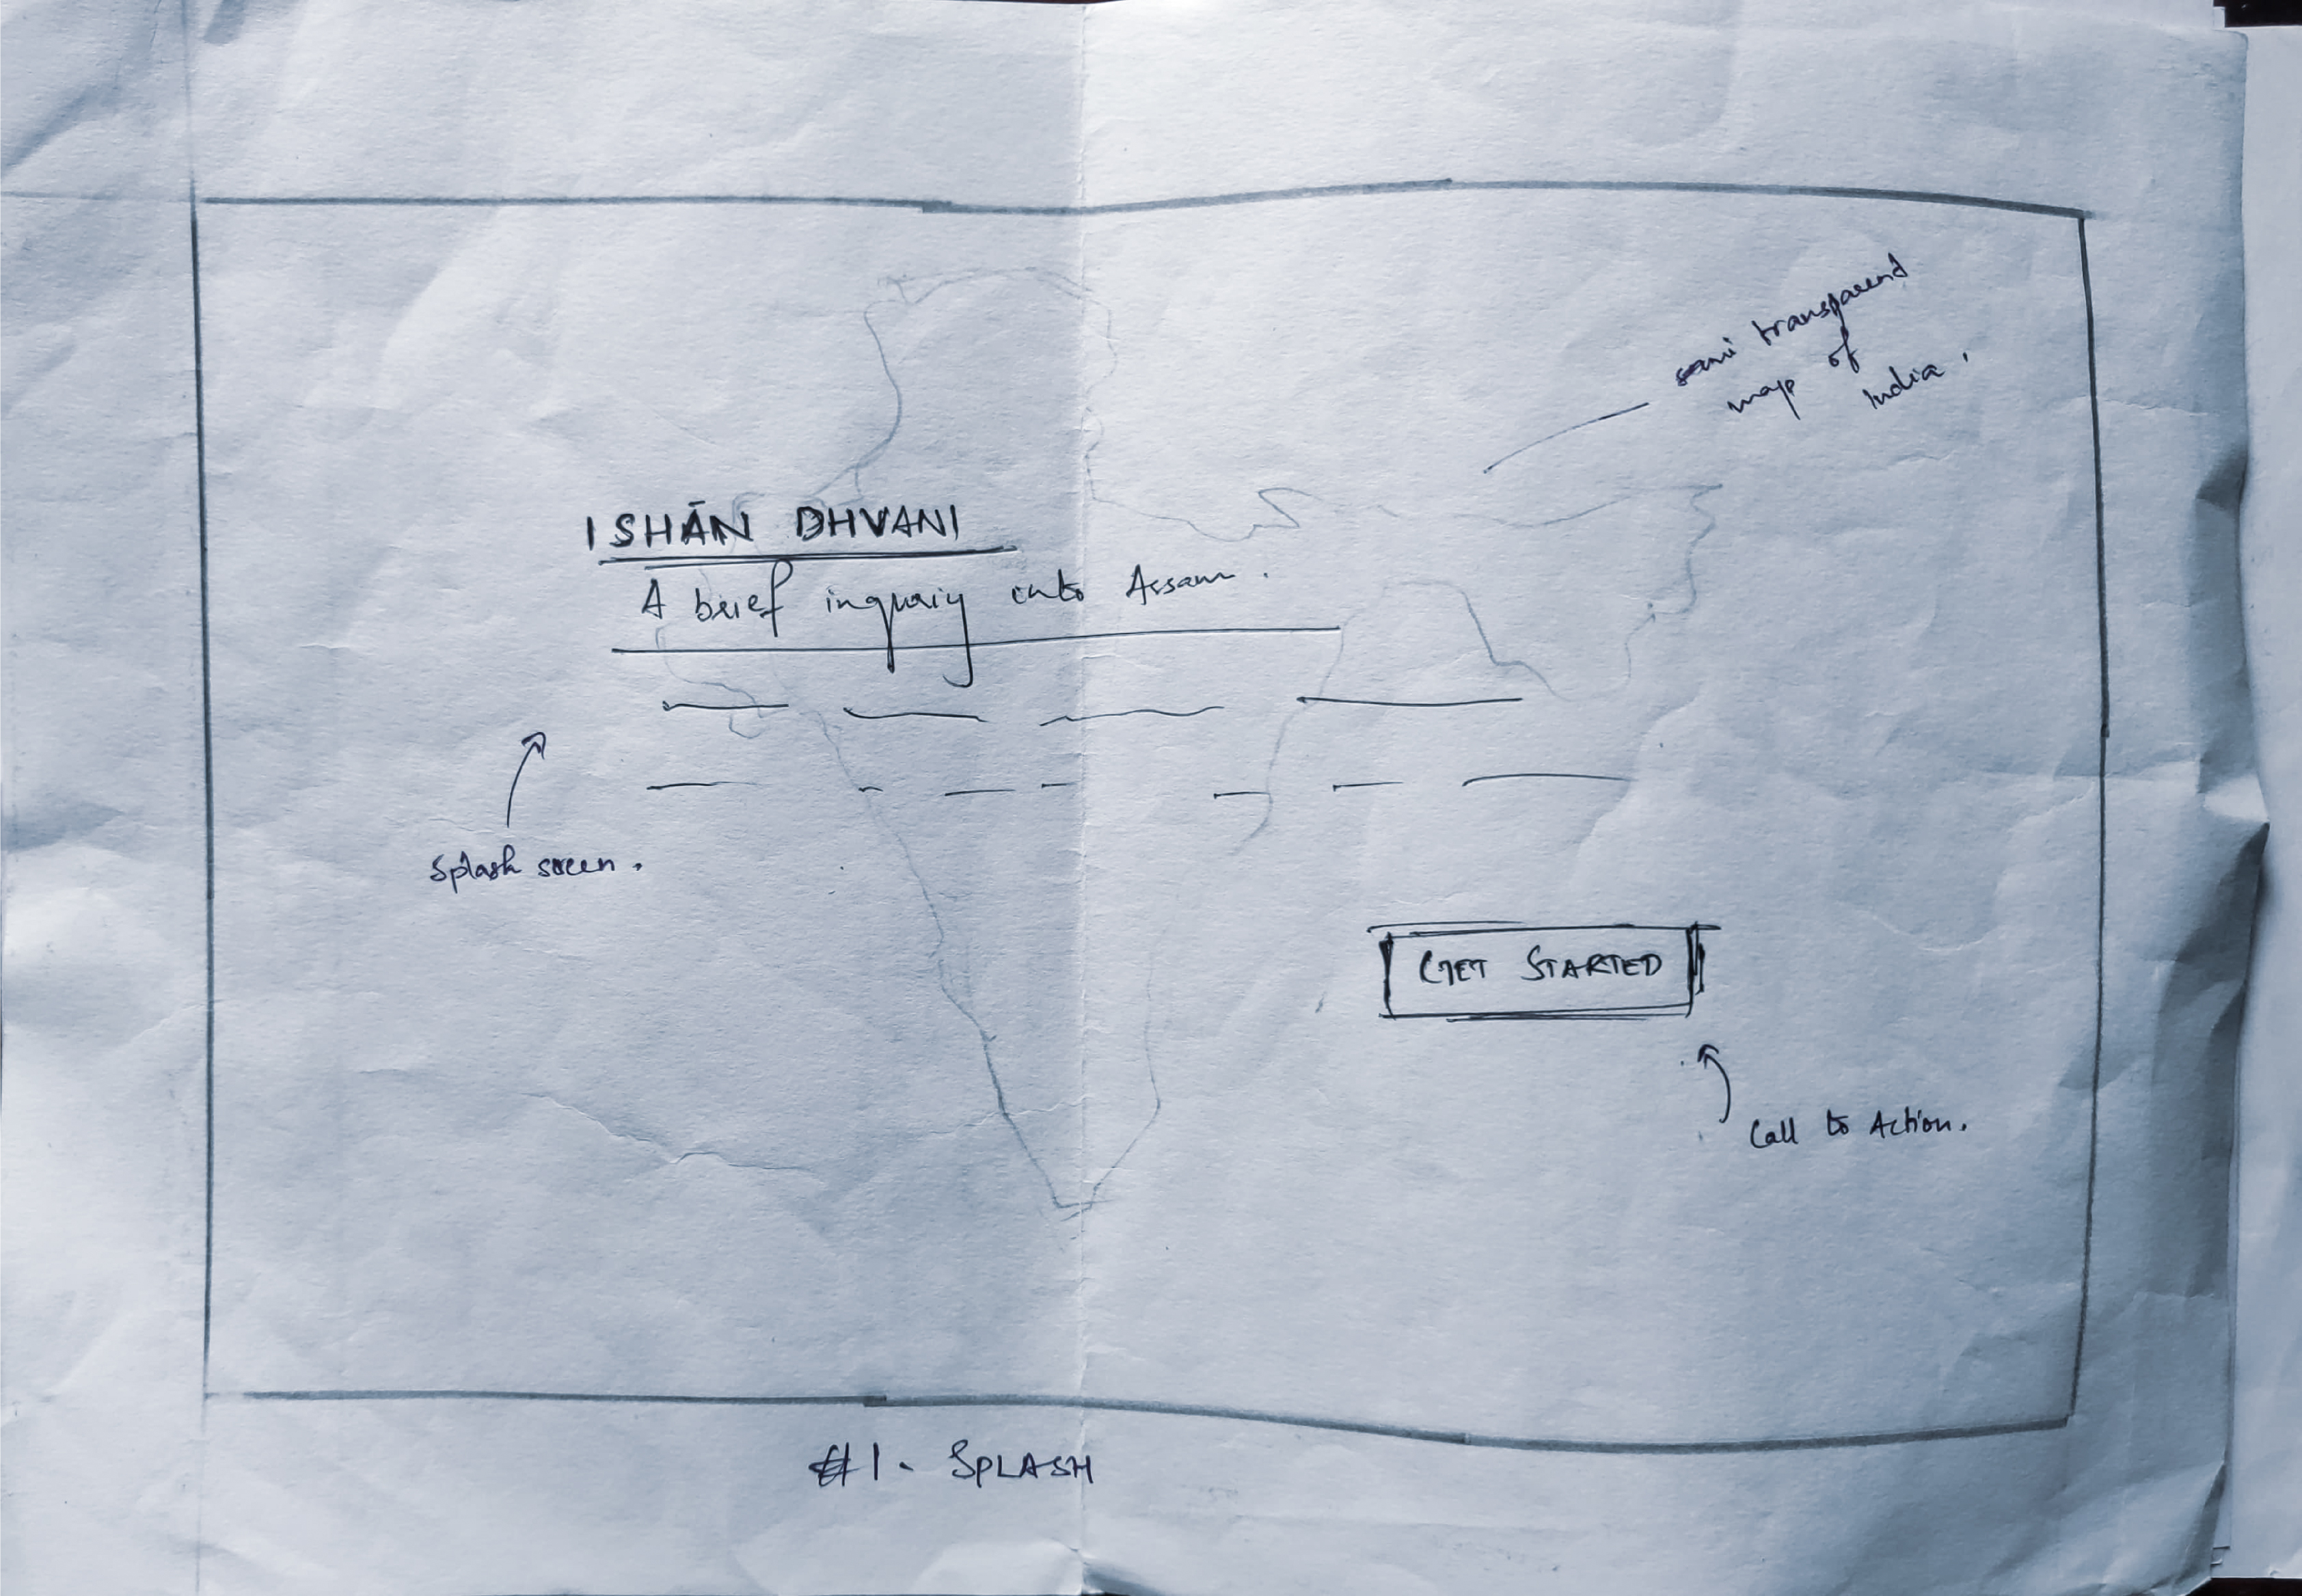 semi transparent
map of
India.
ISHĀN DHVANI
A brief inquriy into Assam.
Splash screen.
GET STARTED
Call to Action.
#1. SPLASH